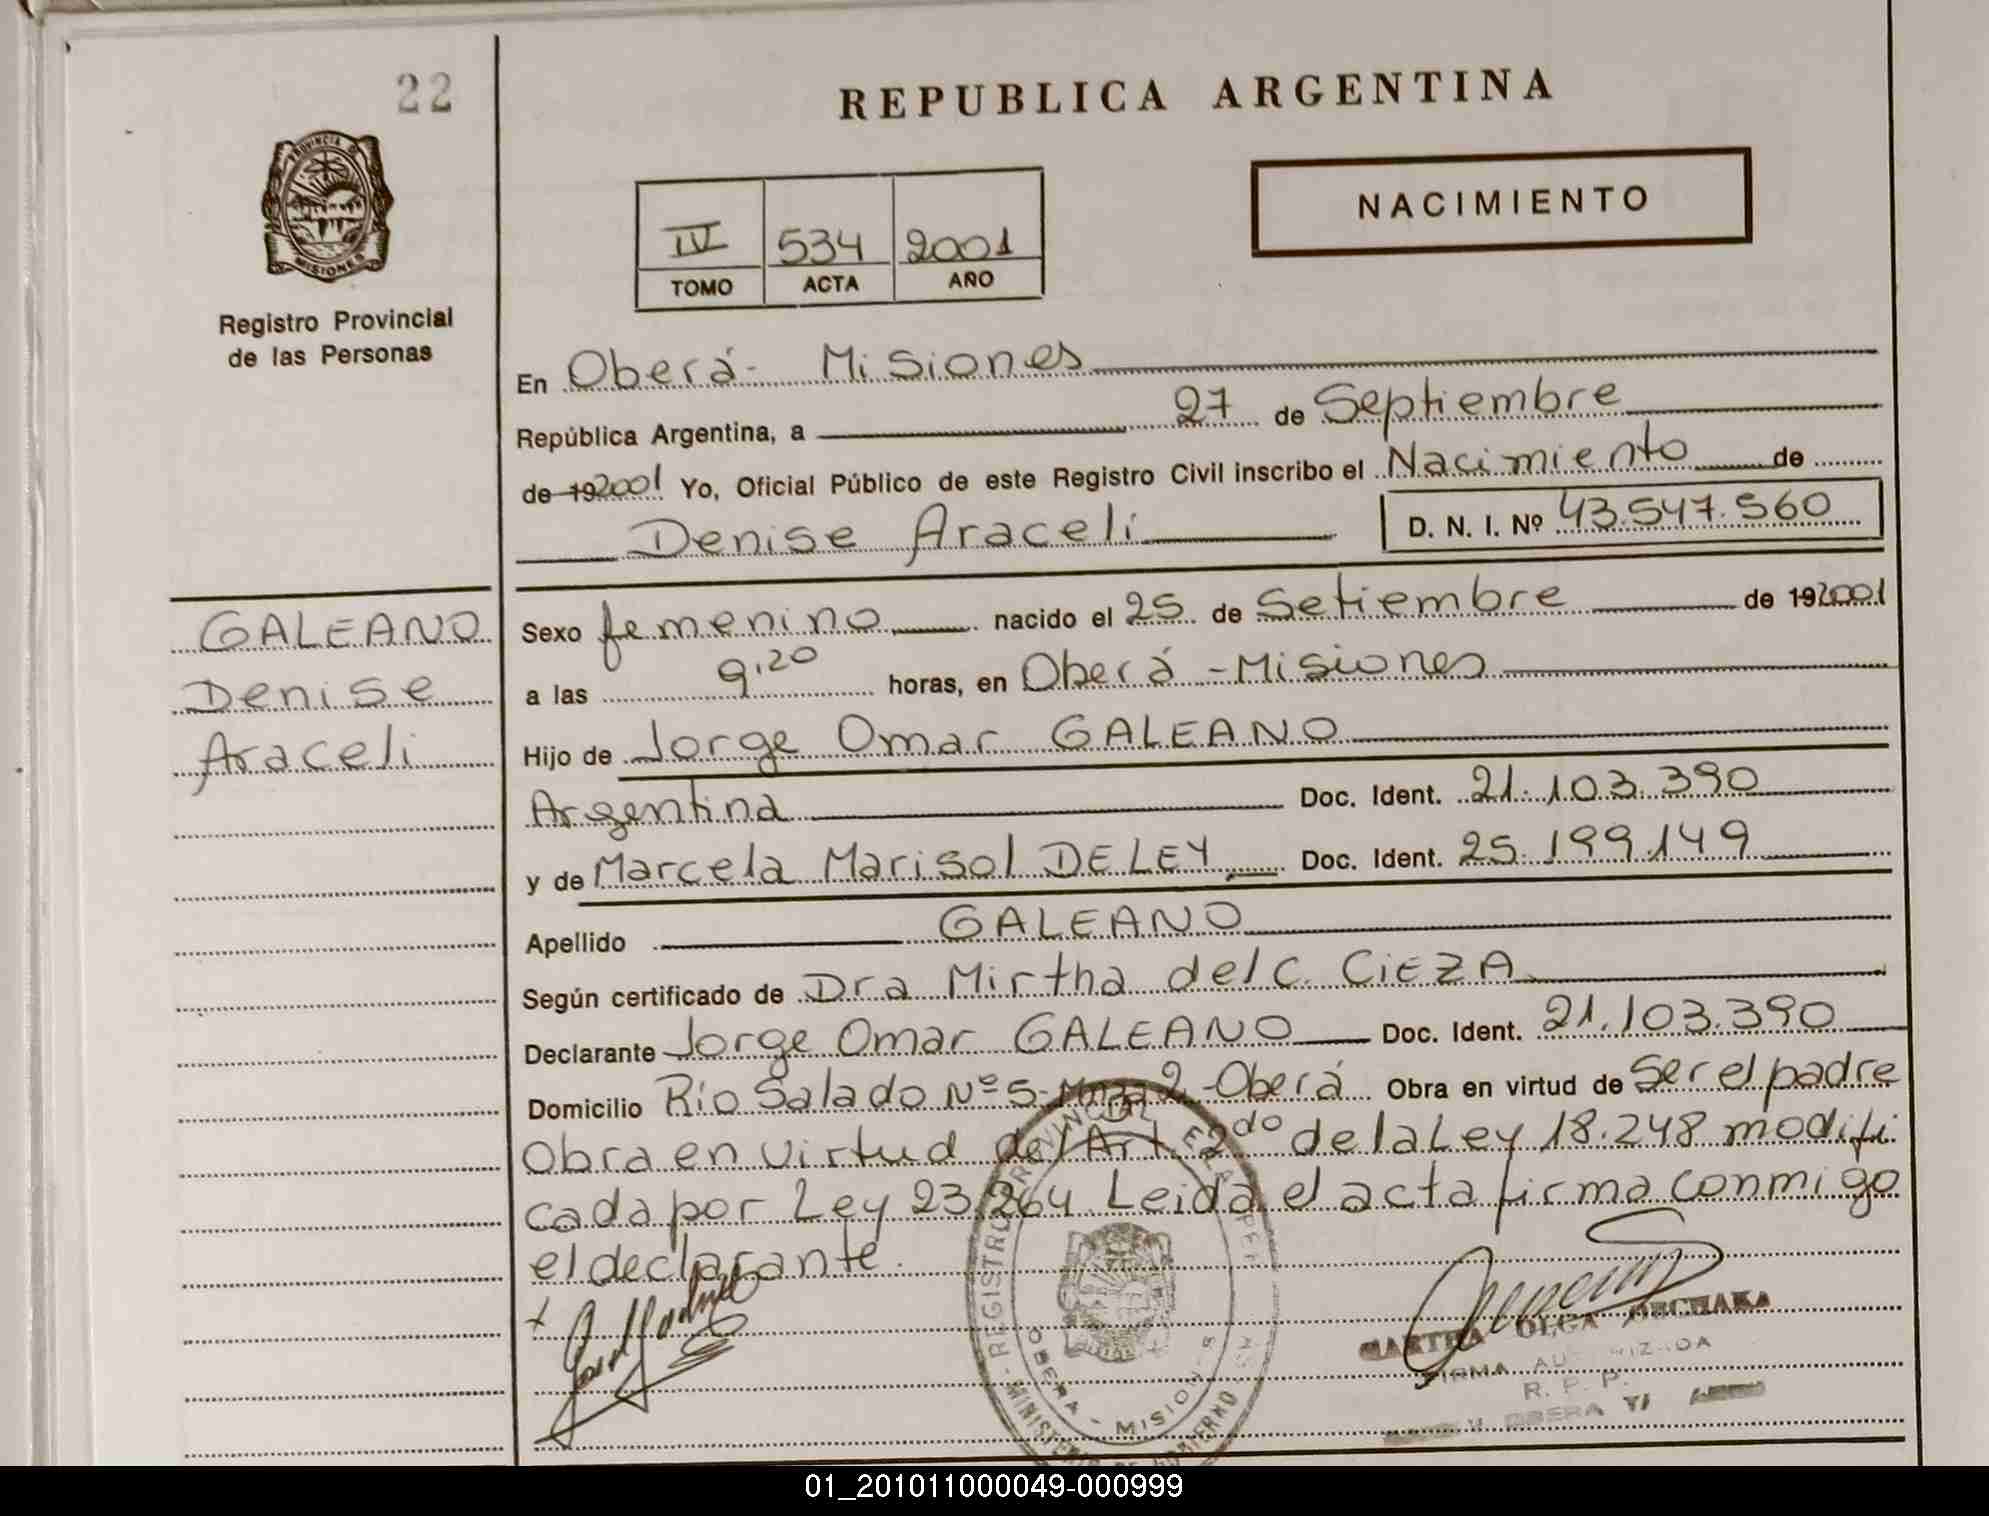 22
REPUBLICA ARGENTINA
PROVINCIA DE
MISIONES
Registro Provincial
de las Personas
NACIMIENTO
IV 534 2001
TOMO ACTA AÑO
En Oberá - Misiones
República Argentina, a 27 de Septiembre
de 192001 Yo, Oficial Público de este Registro Civil inscribo el Nacimiento de
Denise Araceli D. N. I. Nº 43.547.560
GALEANO
Denise
Araceli
Sexo femenino nacido el 25 de Setiembre de 192001
a las 9,20 horas, en Oberá - Misiones
Hijo de Jorge Omar GALEANO
Argentina Doc. Ident. 21.103.390
y de Marcela Marisol DE LEY Doc. Ident. 25.199.149
Apellido GALEANO
Según certificado de Dra Mirtha del C. CIEZA
Declarante Jorge Omar GALEANO Doc. Ident. 21.103.390
Domicilio Río Salado Nº 5 - Mnza 2 - Oberá Obra en virtud de Ser el padre
Obra en virtud del Art. 2do de la Ley 18.248 modifi
cada por Ley 23.264. Leida el acta firma conmigo
el declarante.
OBERA - MISIONES
OLGA
FIRMA AUTORIZADA
R. P. P.
OBERA
01_201011000049-000999